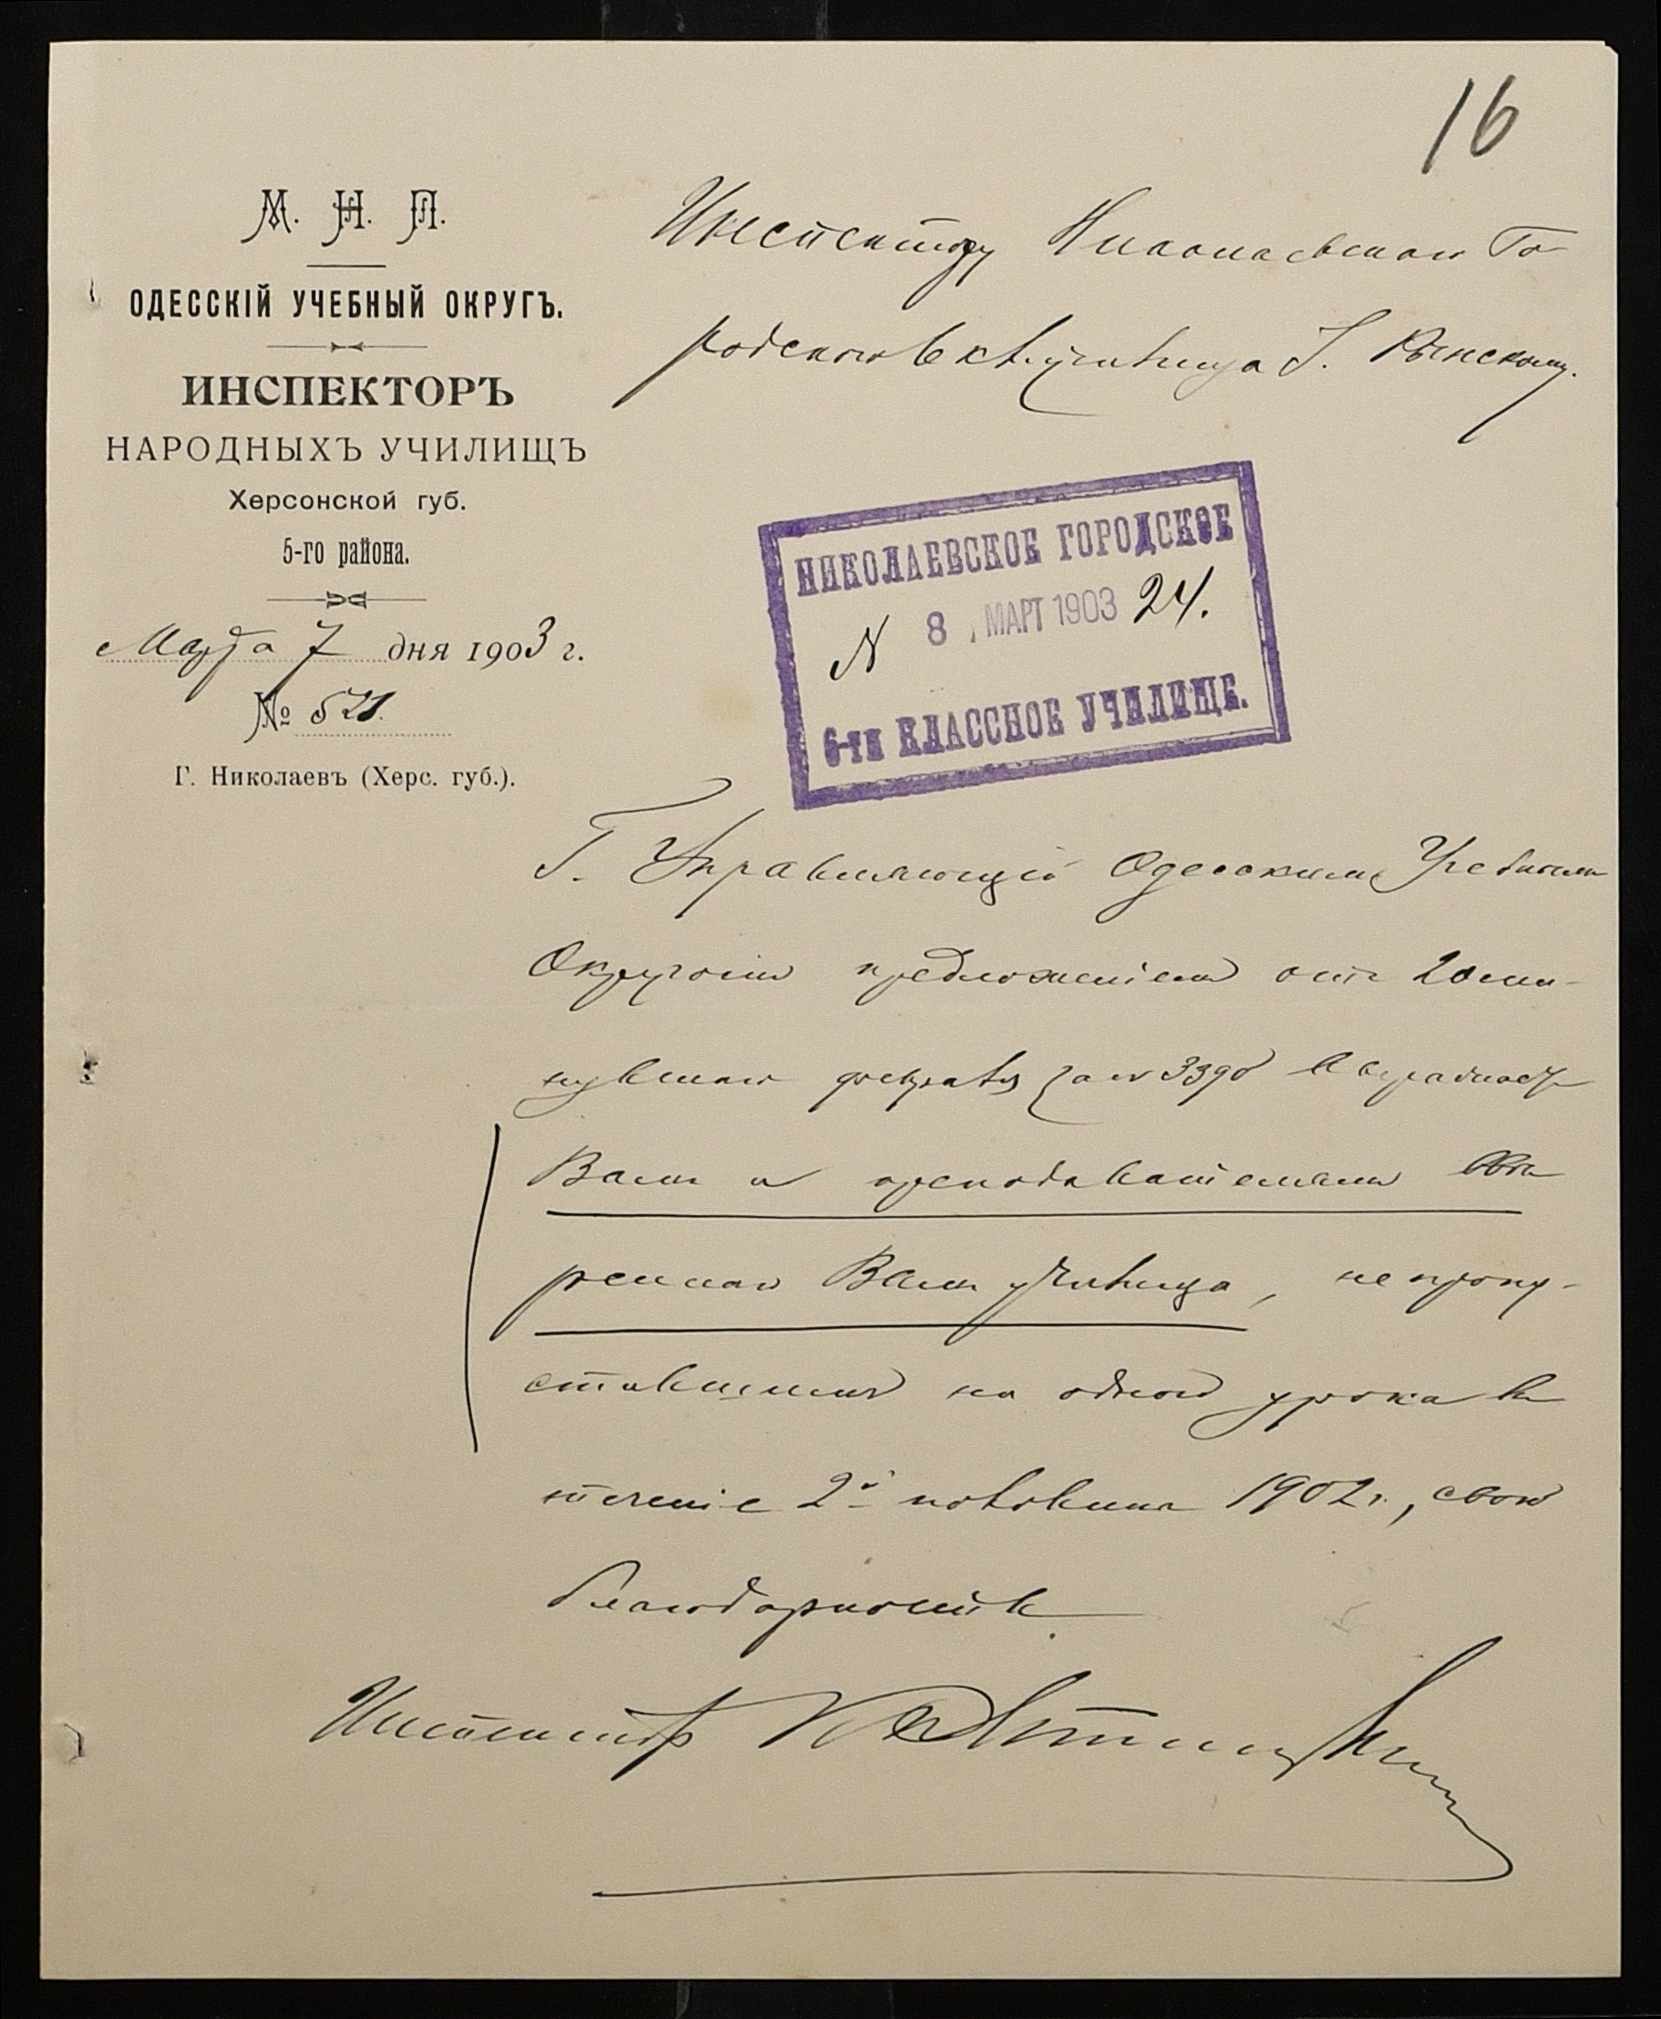 16
М. Н. П.
ОДЕССКІЙ УЧЕБНЫЙ ОКРУГЪ.
ИНСПЕКТОРЪ
НАРОДНЫХЪ УЧИЛИЩЪ
Херсонской губ.
5-го района.
Марта 7 дня 1903 г.
№ 521.
Г. Николаевъ (Херс. губ.).
Инспектору Николаевскаго Го-
родского 6 кл. училища Г.
НИКОЛАЕВСКОЕ ГОРОДСКОЕ
N 8 МАРТ 1903 24.
6-ти КЛАССНОЕ УЧИЛИЩЕ.
Г. Управляющій Одесскимъ Учебнымъ
Округомъ предложеніемъ отъ 20 ми-
нувшаго февраля за №
Вамъ и преподавателямъ ввѣ-
реннаго Вамъ училища, не пропу-
стившимъ ни одного урока въ
теченіе 2й половины 1902 г., свою
благодарность
Инспекторъ